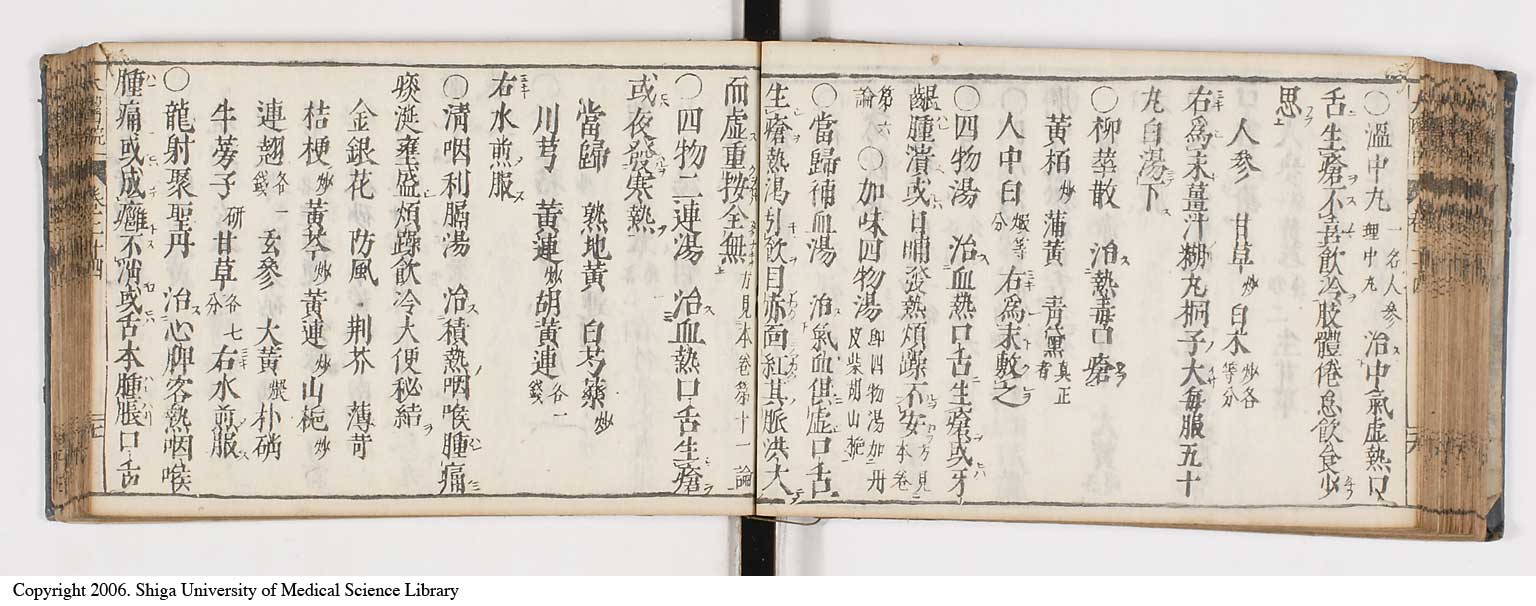 ○溫中丸 一名人參理中丸 治中氣虛熱口
舌生瘡不喜飲冷肢體倦怠飲食少
思
人參 甘草炒 白朮炒各等分
右爲末薑汁糊丸桐子大每服五十
丸白湯下
○柳華散 治熱毒口瘡
黃栢炒 蒲黃 靑黛真正者
人中白煅等分 右爲末敷之
○四物湯 治血熱口舌生瘡或牙
齦腫潰或日晡發熱煩躁不安方見本卷
第六論 ○加味四物湯 即四物湯加丹皮柴胡山梔
○當歸補血湯 治氣血俱虛口舌
生瘡熱渴引飲目赤面紅其脈洪大
而虛重按全無 方見本卷第十一論
○四物二連湯 治血熱口舌生瘡
或夜發寒熱
當歸 熟地黃 白芍藥炒
川芎 黃連炒 胡黃連各二錢
右水煎服
○淸咽利膈湯 治積熱咽喉腫痛
痰涎壅盛煩躁飲冷大便秘結
金銀花 防風 荆芥 薄苛
桔梗炒 黃芩炒 黃連炒 山梔炒
連翹各一錢 玄參 大黃煨 朴硝
牛蒡子研 甘草各七分 右水煎服
○龍射聚聖丹 治心脾客熱咽喉
腫痛或成癰不消或舌本腫脹口舌
Copyright 2006. Shiga University of Medical Science Library